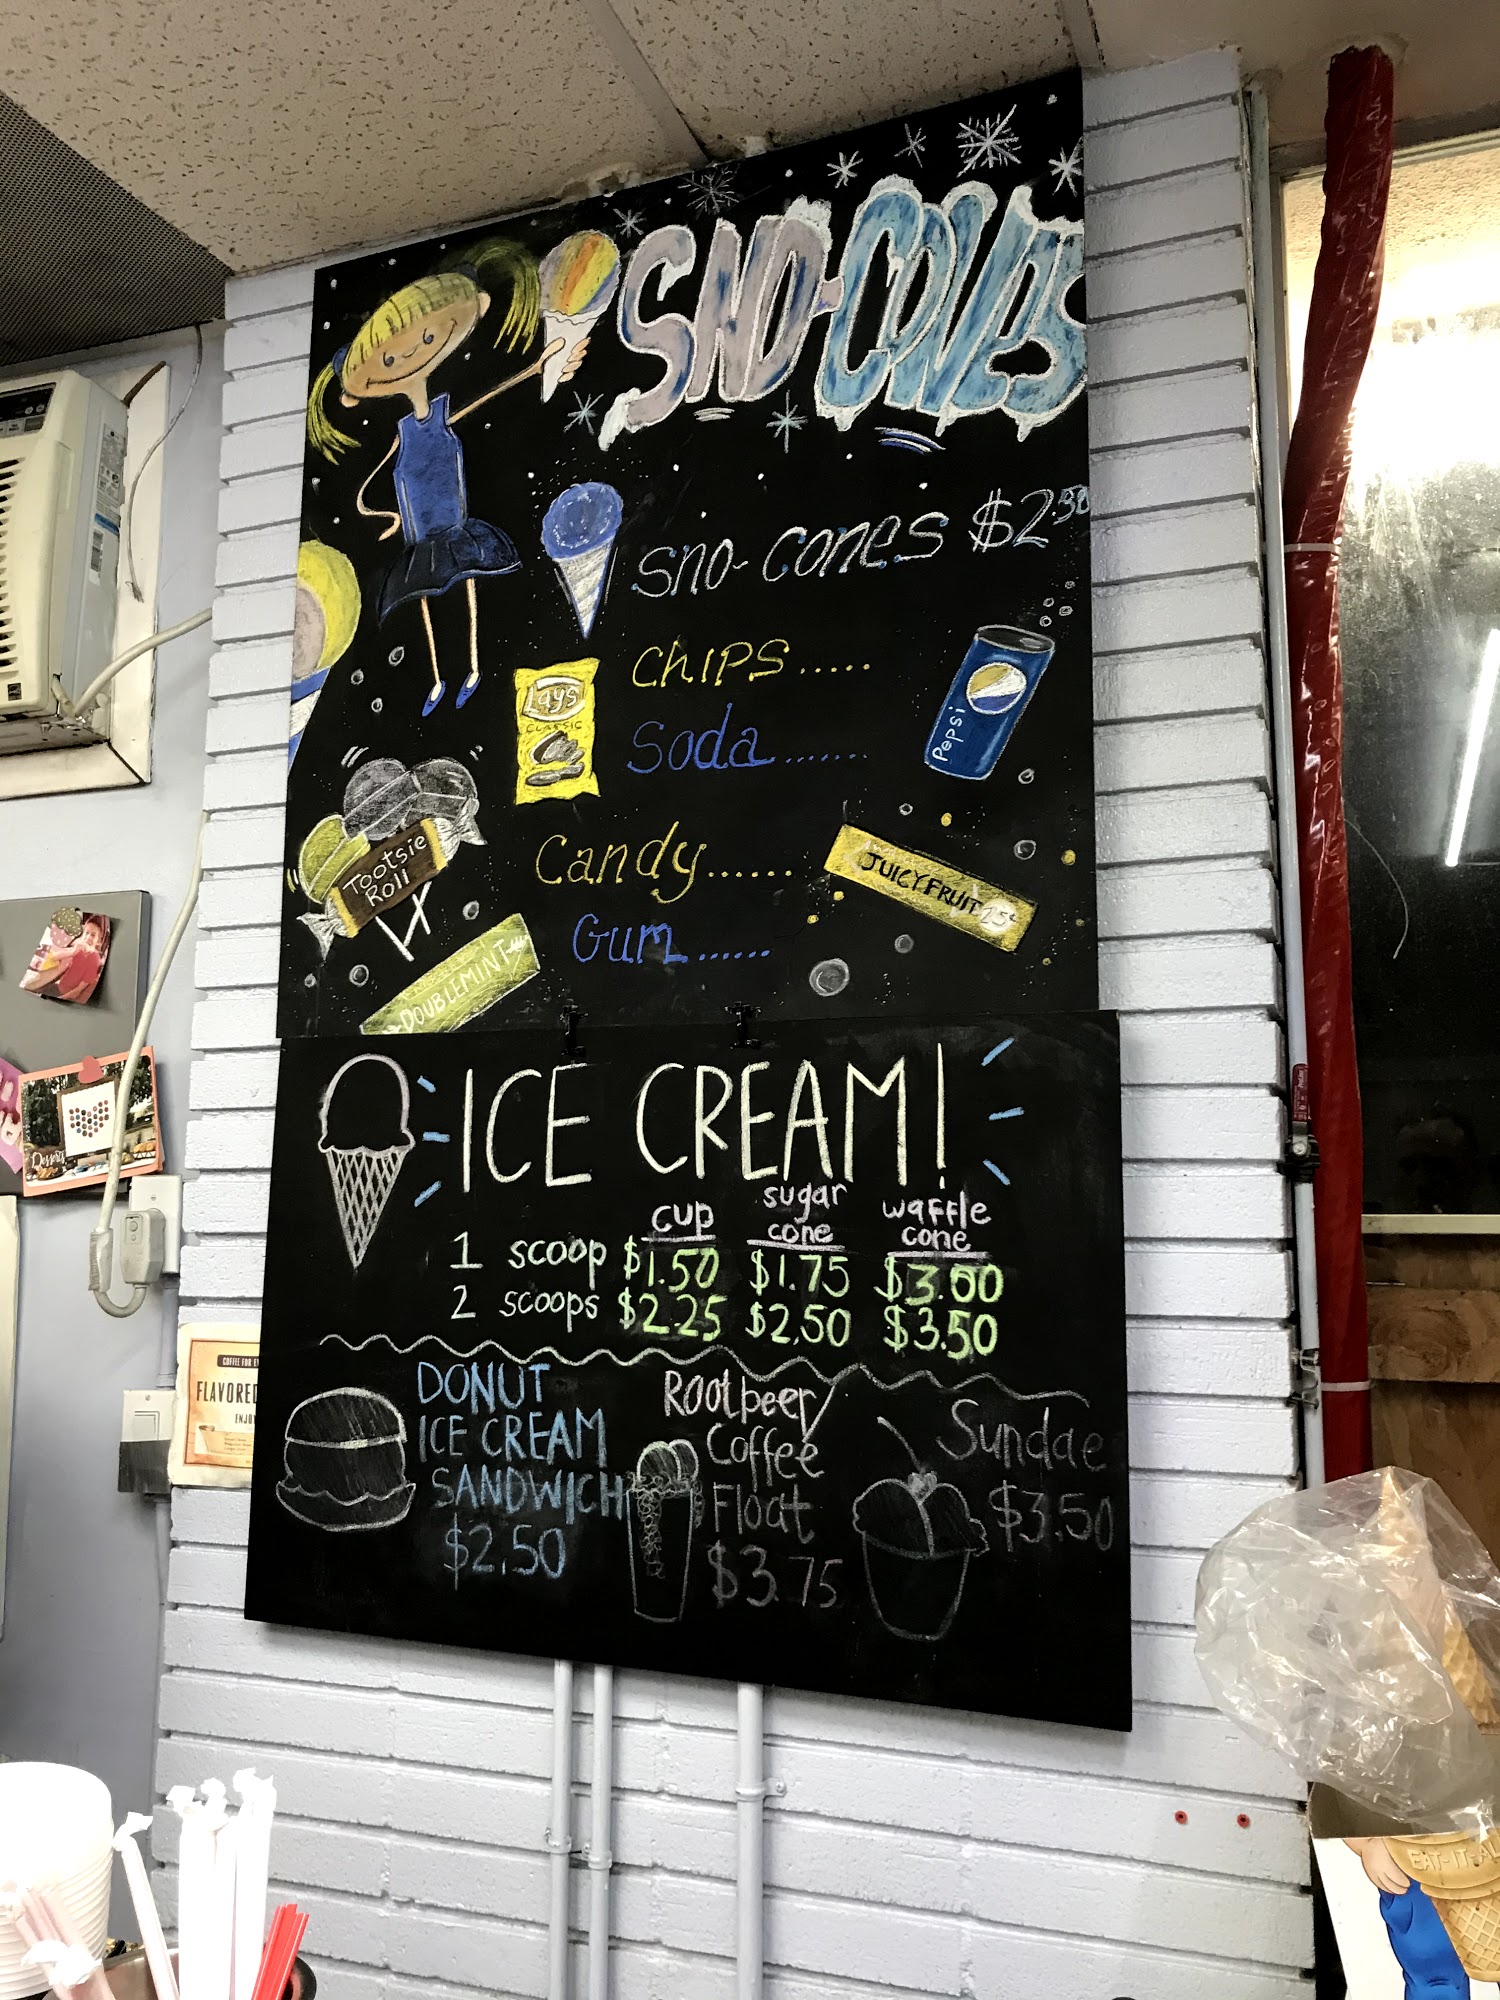 SNO-CONES
sno-cones $2.50
Lays
CLASSIC
CHIPS.....
Pepsi
Soda.......
Tootsie
Roll
Candy......
JUICYFRUIT 25¢
Gum......
DOUBLEMINT
ICE CREAM!
cup sugar cone waffle cone
1 scoop $1.50 $1.75 $3.00
2 scoops $2.25 $2.50 $3.50
DONUT
ICE CREAM
SANDWICH
$2.50
Rootbeer/
Coffee
Float
$3.75
Sundae
$3.50
Desserts
COFFEE FOR
FLAVORED
EAT-IT-AL